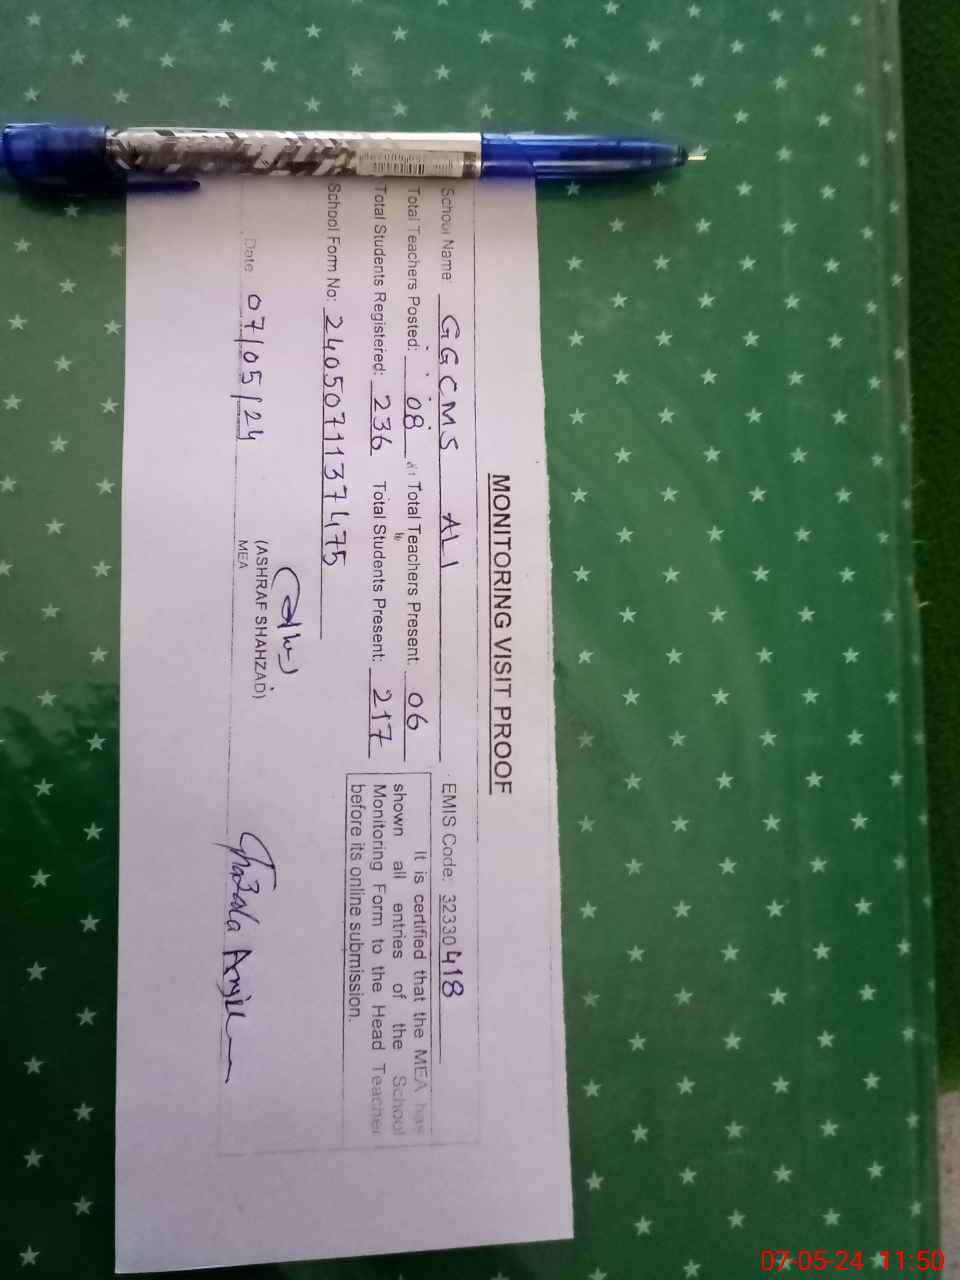 MONITORING VISIT PROOF
School Name: GGCMS ALI EMIS Code: 32330418
Total Teachers Posted: 08 Total Teachers Present: 06
Total Students Registered: 236 Total Students Present: 217
School Form No: 2405071137475
It is certified that the MEA has
shown all entries of the School
Monitoring Form to the Head Teacher
before its online submission.
Date 07/05/24
(ASHRAF SHAHZAD)
MEA
Ghazala
07-05-24 11:50